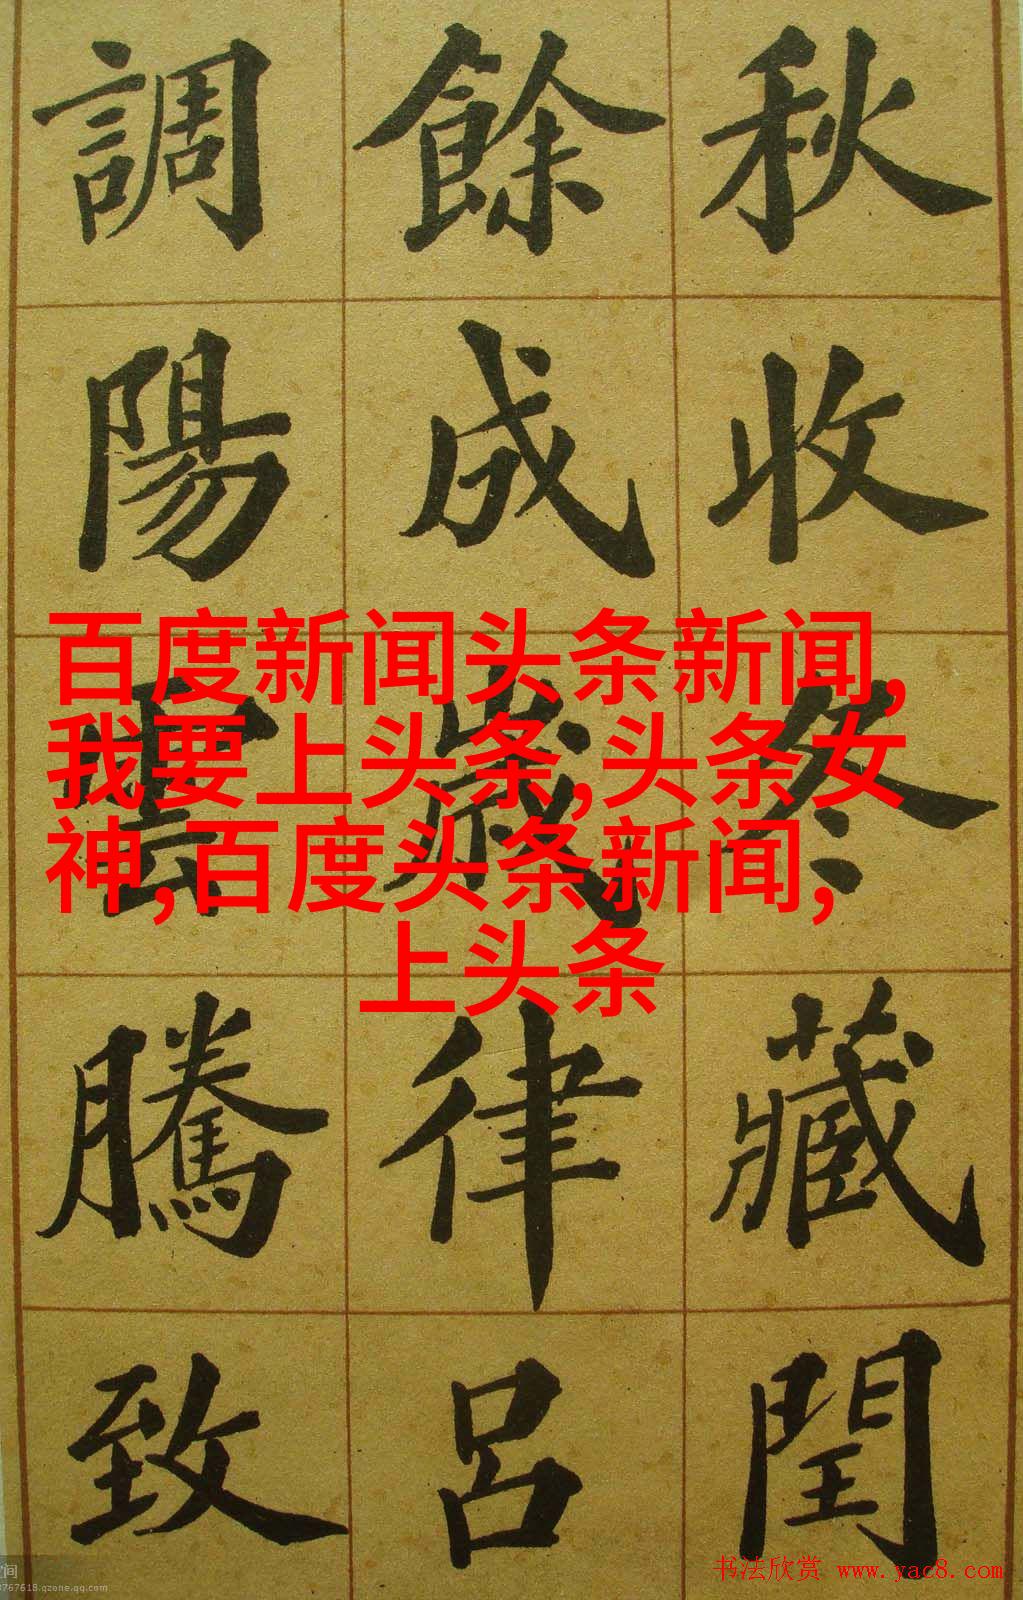 秋收冬藏閏
餘成歲律呂
調陽雲騰致
百度新闻头条新闻,
我要上头条,头条女
神,百度头条新闻,
上头条
书法欣赏 www.yac8.com
间
767618.qzone.qq.com